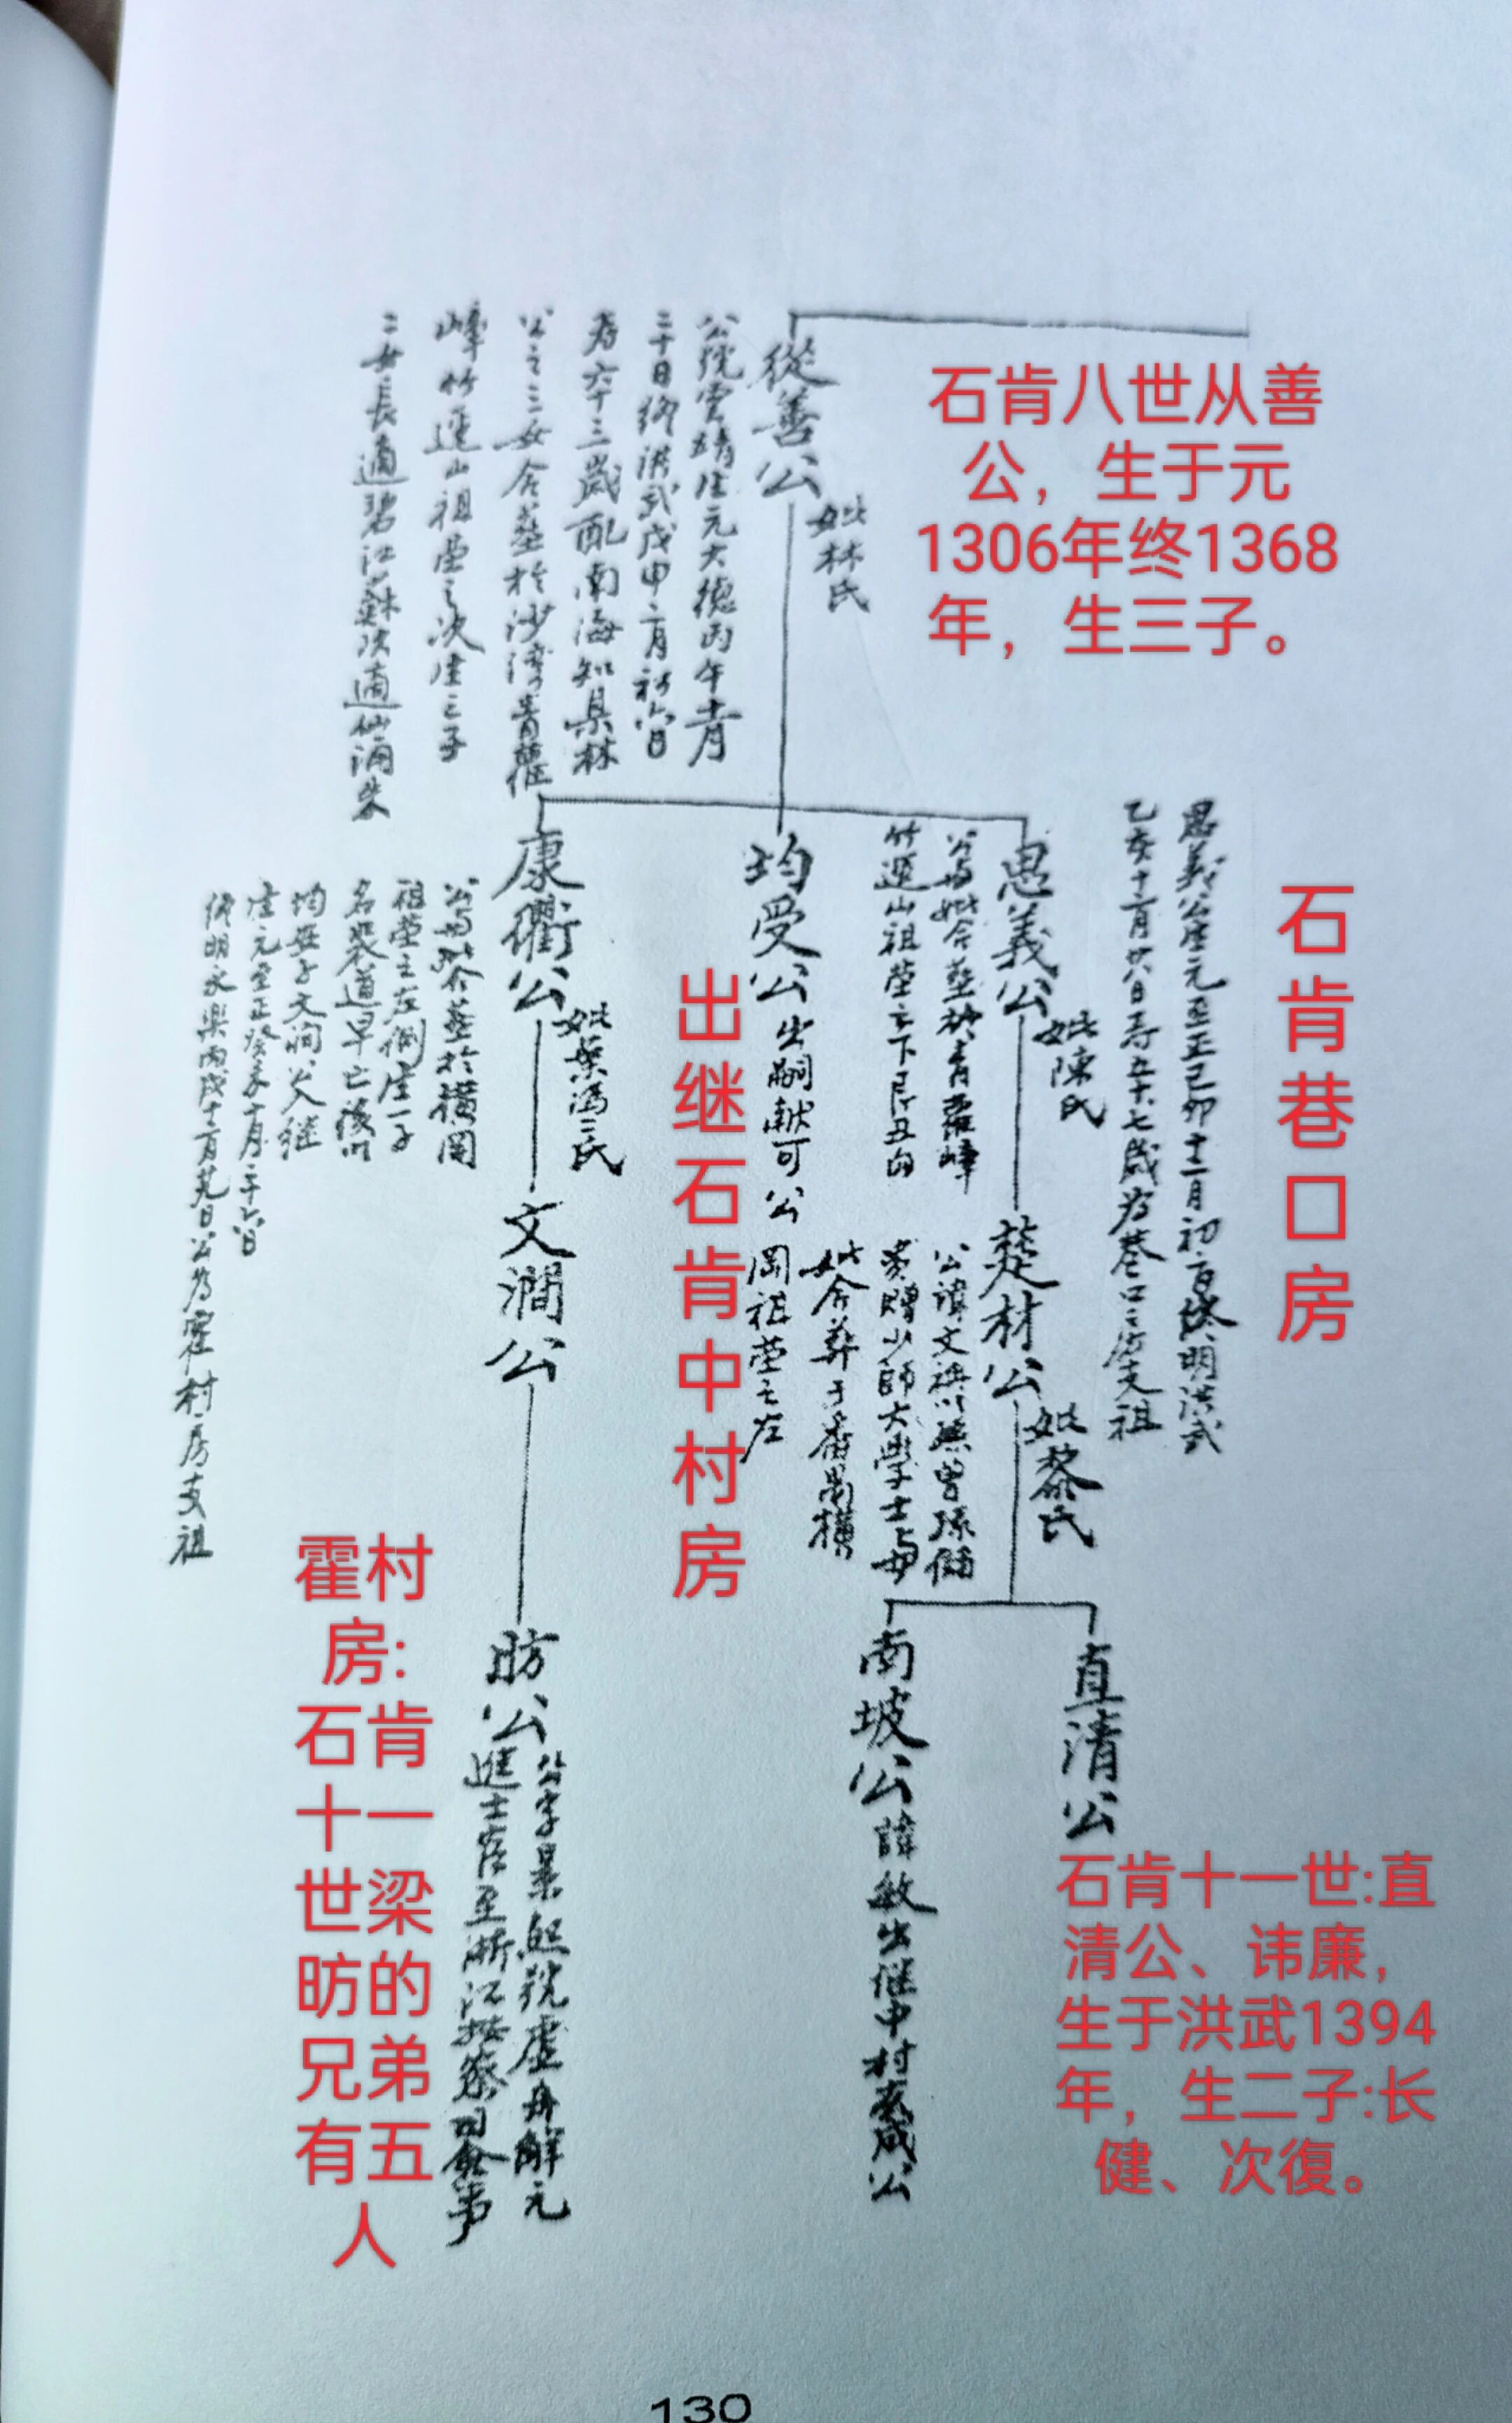 從善公
妣林氏
公號雲靖生元大德丙午十一月
二十日終洪武戊申六月初六日
壽六十三歲配南海知縣林
公之三女合葬於沙灣青蘿
峰竹逕山祖塋之次生三子
二女長適碧江蘇次適仙涌朱
石肯八世从善
公，生于元
1306年终1368
年，生三子。
石肯巷口房
思義公生元至正己卯十二月初二日終明洪武
乙亥十二月廿八日壽五十七歲為巷口之房支祖
思義公
妣陳氏
公與妣合葬於青蘿峰
竹逕山祖塋之下艮丑向
均受公
出嗣献可公
出继石肯中村房
康衢公
妣葉馮二氏
公與妣合葬於橫岡
祖塋之左側生一子
名裴道早亡後以
均安子文澗入继
生元至正癸未十月二十六日
終明永樂丙戌十一月廿九日公為霍村房支祖
楚材公
妣黎氏
公諱文祺以孫曾孫儲
貴贈少師大學士與
妣合葬于番禺橫
岡祖塋之左
文澗公
直清公
南坡公
諱敏出继中村裘成公
昉公
公字景熙號虛舟解元
進士官至浙江按察司僉事
霍村
房:
石肯
十一
世梁
昉的
兄弟
有五
人
石肯十一世:直
清公、讳廉，
生于洪武1394
年，生二子:长
健、次復。
130